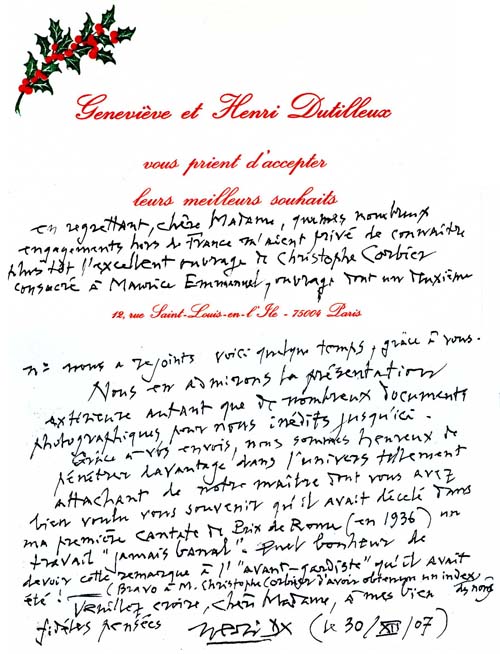 Geneviève et Henri Dutilleux
vous prient d'accepter
leurs meilleurs souhaits
en regrettant, chère Madame, que mes nombreux
engagements hors de France m'aient privé de connaître
plus tôt l'excellent ouvrage de Christophe Corbier
consacré à Maurice Emmanuel, ouvrage dont un deuxième
12, rue Saint-Louis-en-l'Ile - 75004 Paris
n° nous a rejoints voici quelque temps, grâce à vous.
Nous en admirons la présentation
extérieure autant que de nombreux documents
photographiques, pour nous inédits jusqu'ici.
Grâce à vos envois, nous sommes heureux de
pénétrer davantage dans l'univers tellement
attachant de notre maître dont vous avez
bien voulu vous souvenir qu'il avait décelé dans
ma première cantate de Prix de Rome (en 1936) un
travail "jamais banal". Quel bonheur de
devoir cette remarque à l'"avant-gardiste" qu'il avait
été! (Bravo à M. Christophe Corbier d'avoir obtenu un index des noms)
Veuillez croire, chère Madame, à mes bien
fidèles pensées
(le 30/XII/07)